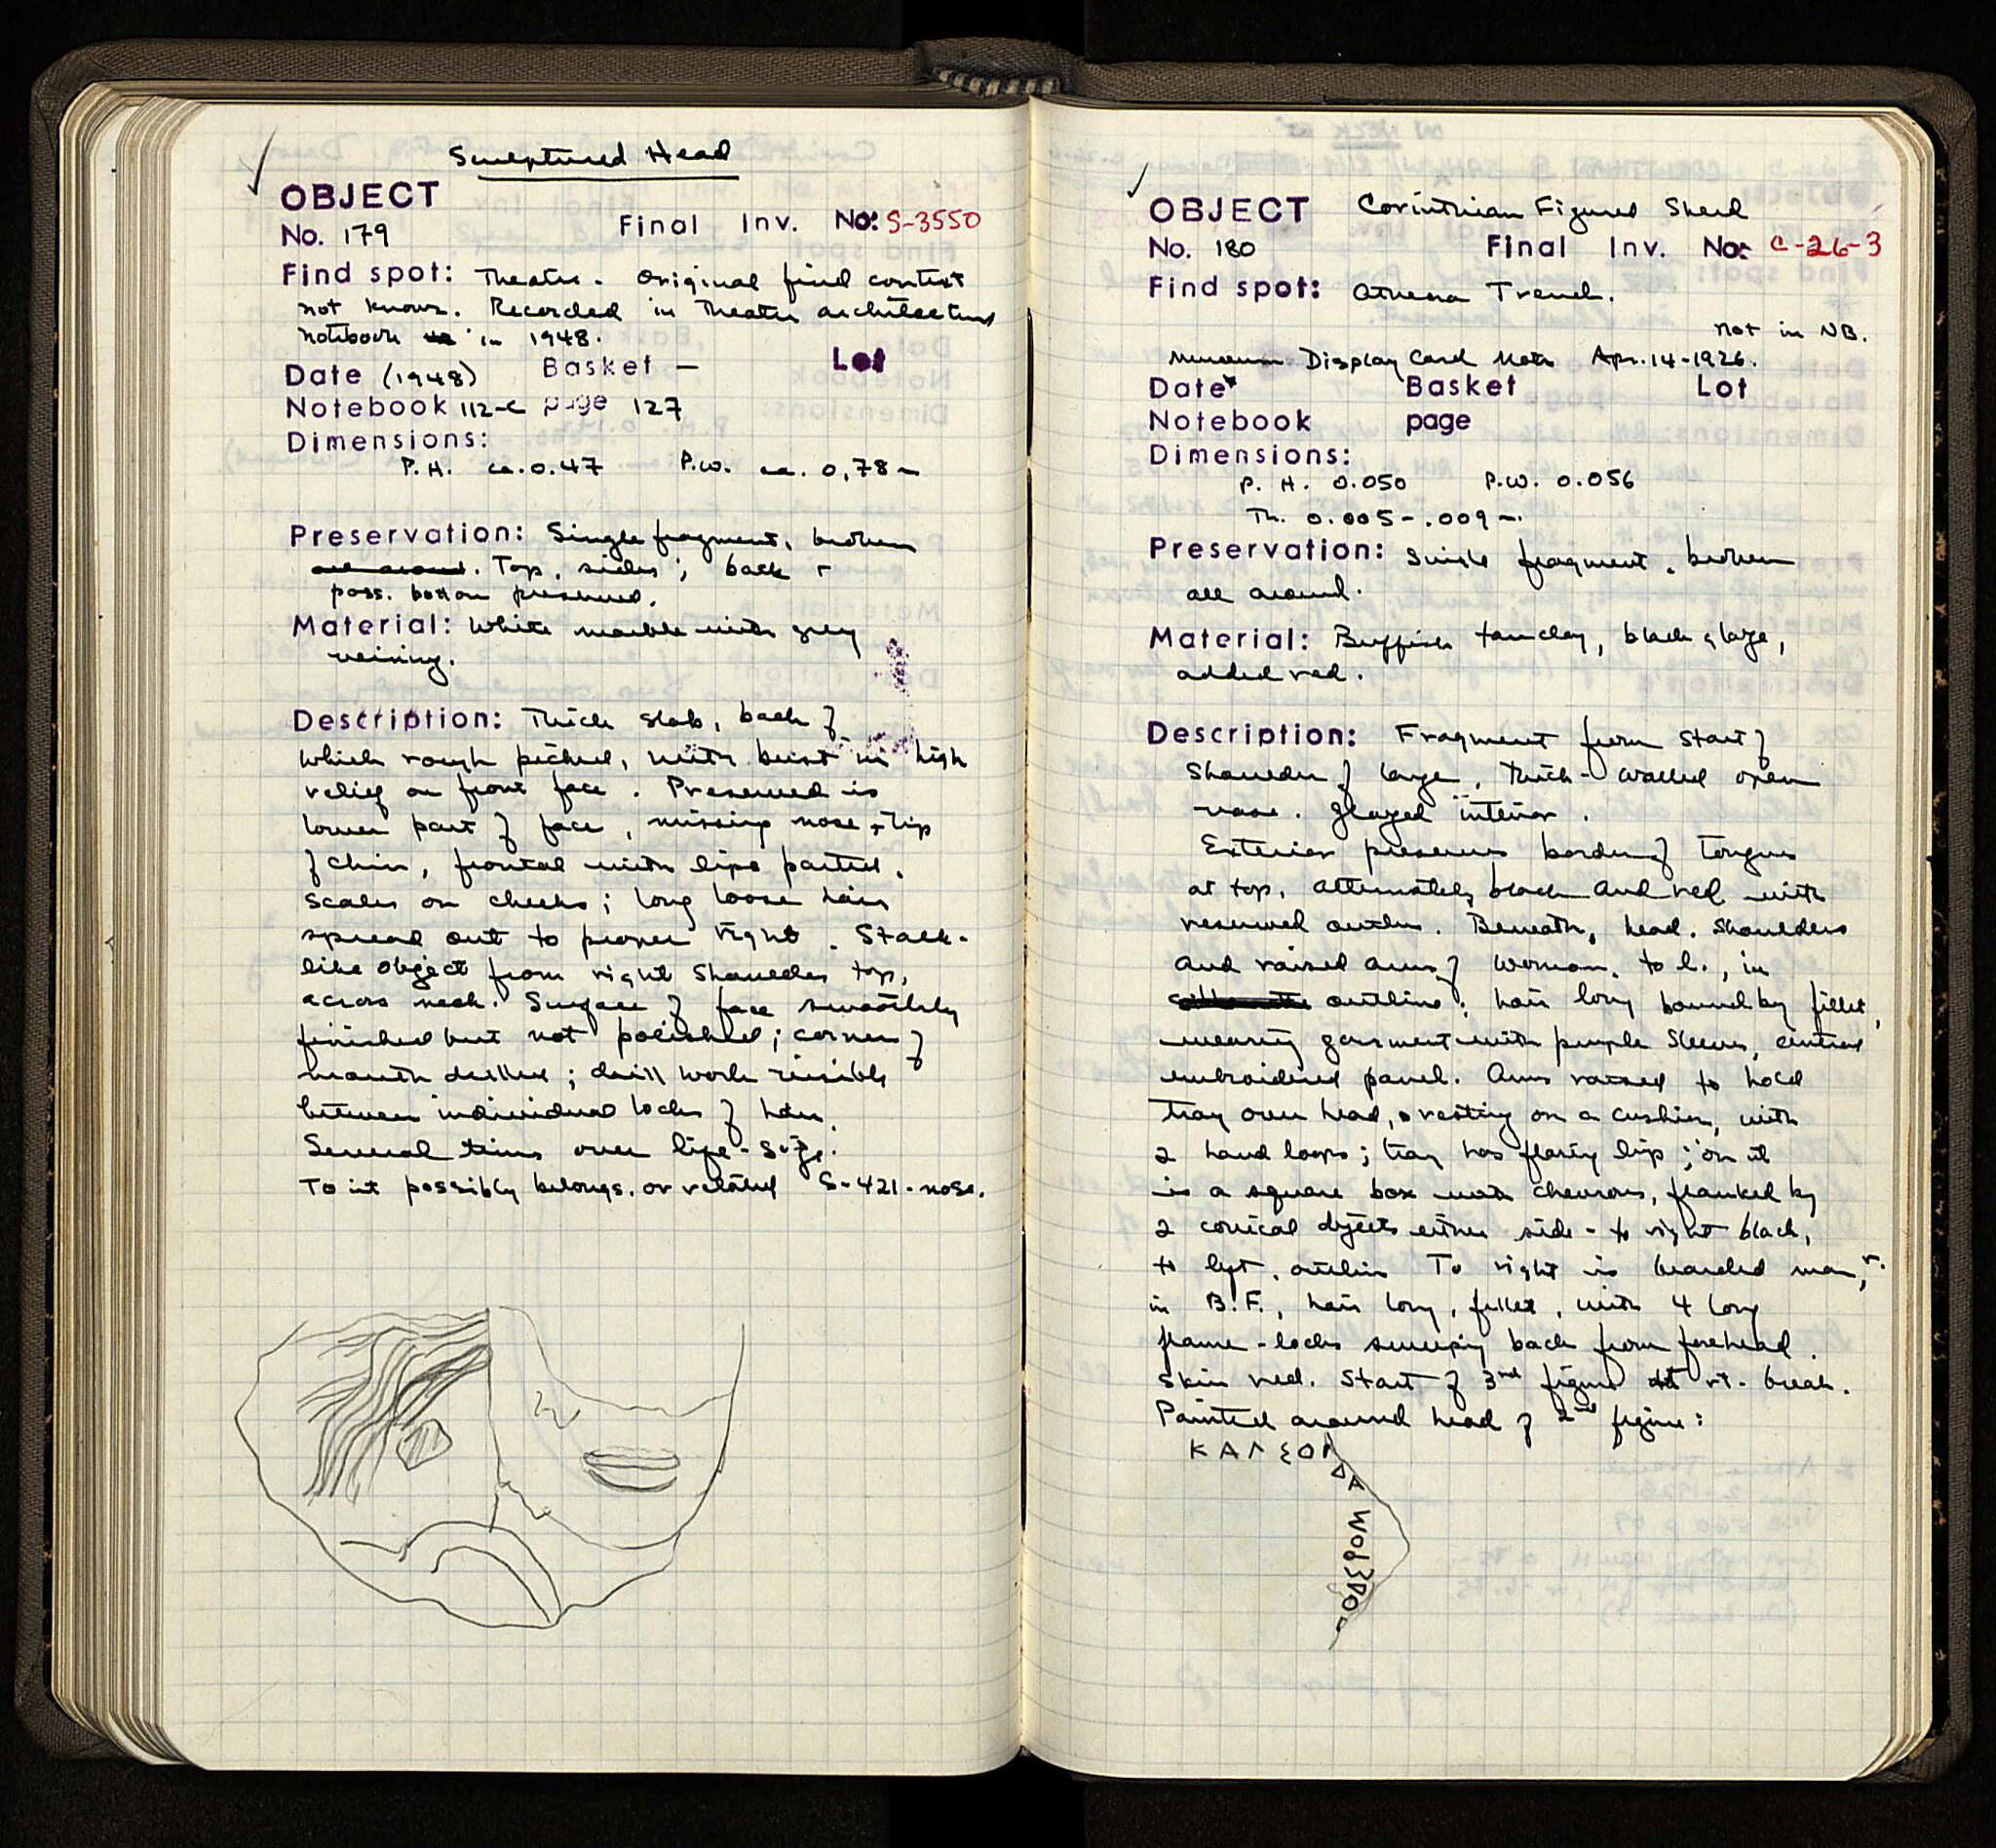 Sculptured Head
OBJECT
No. 179 Final Inv. No: S-3550
Find spot: Theatre. Original find context
not known. Recorded in Theatre architecture
notebook in 1948.
Date (1948) Basket — Lot
Notebook 112-C page 127
Dimensions:
P.H. ca. 0.47 P.W. ca. 0,78 m
Preservation: Single fragment, broken
all around. Top, sides; back +
poss. bottom preserved.
Material: White marble with grey
veining.
Description: Thick slab, back of
which rough picked, with bust in high
relief on front face. Preserved is
lower part of face, missing nose + tip
of chin, frontal with lips parted.
Scales on cheeks; long loose hair
spread out to proper right. Stalk-
like object from right shoulder top,
across neck. Surface of face smoothly
finished but not polished; corner of
mouth drilled; drill work visible
between individual locks of hair.
Several times over life-size.
To it possibly belongs, or related S-421-nose.
OBJECT Corinthian Figured Sherd
No. 180 Final Inv. No: C-26-3
Find spot: Athena Trench.
not in NB.
Museum Display Card Note Apr. 14-1926.
Date Basket Lot
Notebook page
Dimensions:
P. H. 0.050 P.W. 0.056
Th. 0.005-.009 m.
Preservation: Single fragment, broken
all around.
Material: Buffish tan clay, black glaze,
added red.
Description: Fragment from start of
shoulder of large, thick-walled open
vase. Glazed interior.
Exterior preserves border of tongues
at top, alternately black and red with
reserved outline. Beneath, head, shoulders
and raised arms of woman, to l., in
outline; hair long bound by fillet,
wearing garment with purple sleeves, central
embroidered panel. Arms raised to hold
tray over head, resting on a cushion, with
2 hand loops; tray has flaring lip; on it
is a square box with chevrons, flanked by
2 conical objects either side - to right black,
to left, outline To right is bearded man, r.
in B.F., hair long, fillet, with 4 long
flame-locks sweeping back from forehead.
Skin red. Start of 3rd figure at rt. break.
Painted around head of 2nd figure: